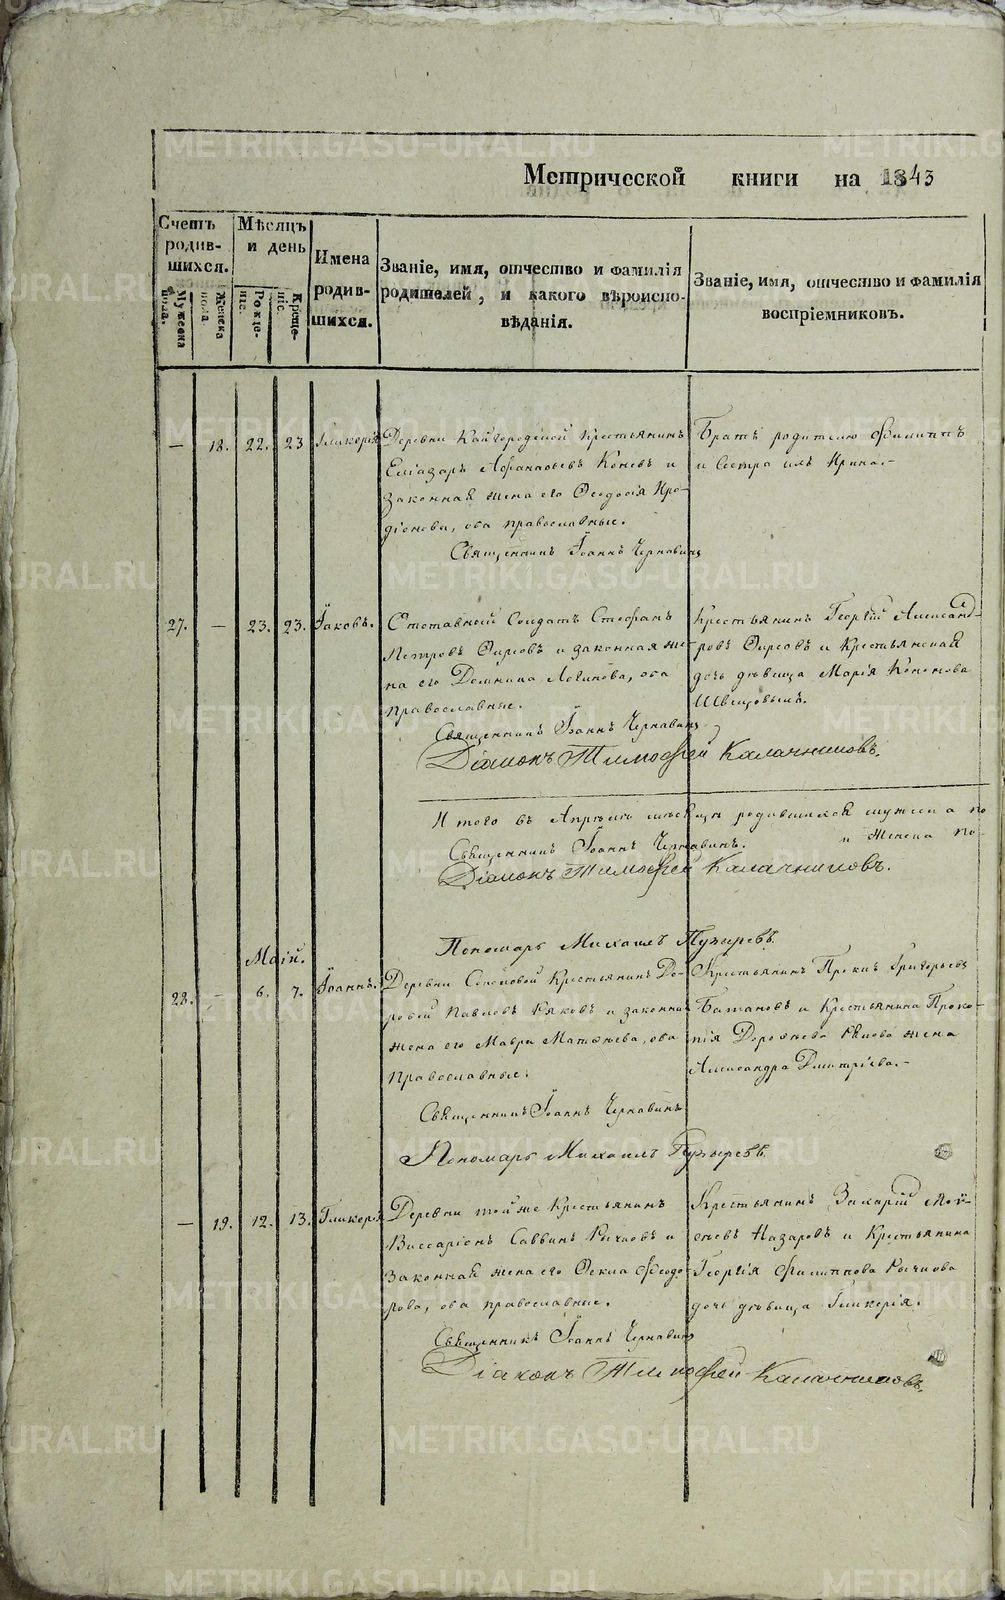 Метрической книги на 1843
Счетъ родив-шихся.
Мужеска пола.
Женска пола.
Мѣсяцъ и день
Рожде-ніе.
Креще-ніе.
Имена родив-шихся.
Званіе, имя, отчество и фамилія
родителей, и какого вѣроиспо-
вѣданія.
Званіе, имя, отчество и фамилія
воспріемниковъ.
— 18. 22. 23 Гликерія
Деревни Кайгородской Крестьянинъ
Елiазаръ Афанасьевъ Коневъ и
законная жена его Ѳеодосія Иро-
діонова, оба православные.
Священникъ Іоаннъ Чернавинъ
Братъ родителю Филиппъ
и Сестра ихъ Ирина.-
27. — 23. 23. Іаковъ.
Отставный Солдатъ Стефанъ
Петровъ и законная же-
на его Домнина Логинова, оба
православные.
Священникъ Іоаннъ Чернавинъ
Діаконъ Тимофей Калачниковъ.
Крестьянинъ Георгій Александ-
ровъ и Крестьянская
дочь дѣвица Марія Кононова
Швецовыхъ.
Итого въ Апрѣлѣ мѣсяцѣ родившихся мужеска по
и женска по-
Священникъ Іоаннъ Чернавинъ.
Діаконъ Тимофей Калачниковъ.
Пономарь Михаилъ Пузыревъ
Маій.
28. — 6. 7. Іоаннъ.
Деревни Крестьянинъ До-
рофей Павловъ и законная
жена его Мавра Матѳѣева, оба
православные.
Священникъ Іоаннъ Чернавинъ
Пономарь Михаилъ Пузыревъ
Крестьянинъ Григорьевъ
и Крестьянина Проко-
пія Дороѳѣева жена
Александра Дмитріева.-
— 19. 12. 13. Гликерія
Деревни той же Крестьянинъ
Виссаріонъ Саввинъ Рычковъ и
законная жена его Ѳекла Ѳеодо-
рова, оба православные.
Священникъ Іоаннъ Чернавинъ
Діаконъ Тимофей Калачниковъ.
Крестьянинъ Захарій Мои-
сѣевъ Назаровъ и Крестьянина
Георгія Филиппова Рычкова
дочь дѣвица Гликерія.
METRIKI.GASO-URAL.RU